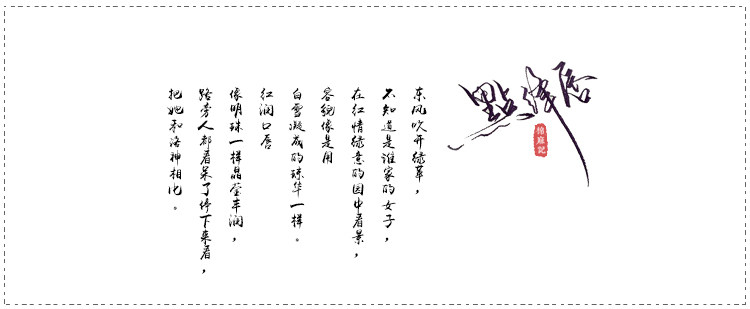 點绛唇
棉麻記
东风吹开绿草，
不知道是谁家的女子，
在红情绿意的园中看景，
容貌像是用
白雪凝成的珠华一样。
红润口唇
像明珠一样晶莹丰润，
路旁人都看呆了停下来看，
把她和洛神相比。